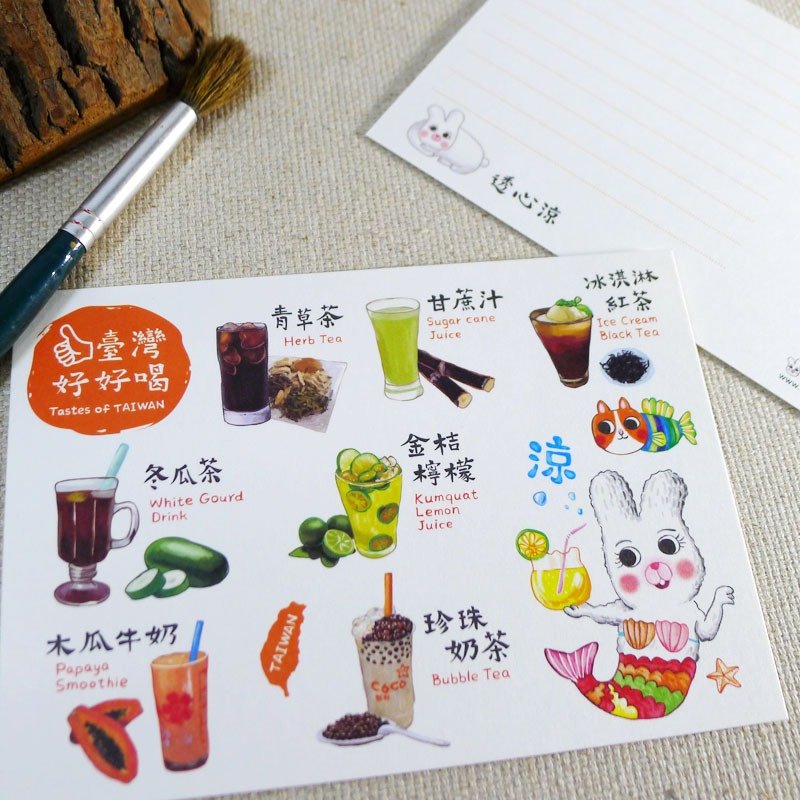 透心涼
www.
臺灣
好好喝
Tastes of TAIWAN
青草茶
Herb Tea
甘蔗汁
Sugar cane
Juice
冰淇淋
紅茶
Ice Cream
Black Tea
冬瓜茶
White Gourd
Drink
金桔
檸檬
Kumquat
Lemon
Juice
涼
木瓜牛奶
Papaya
Smoothie
TAIWAN
CoCo
都可
珍珠
奶茶
Bubble Tea